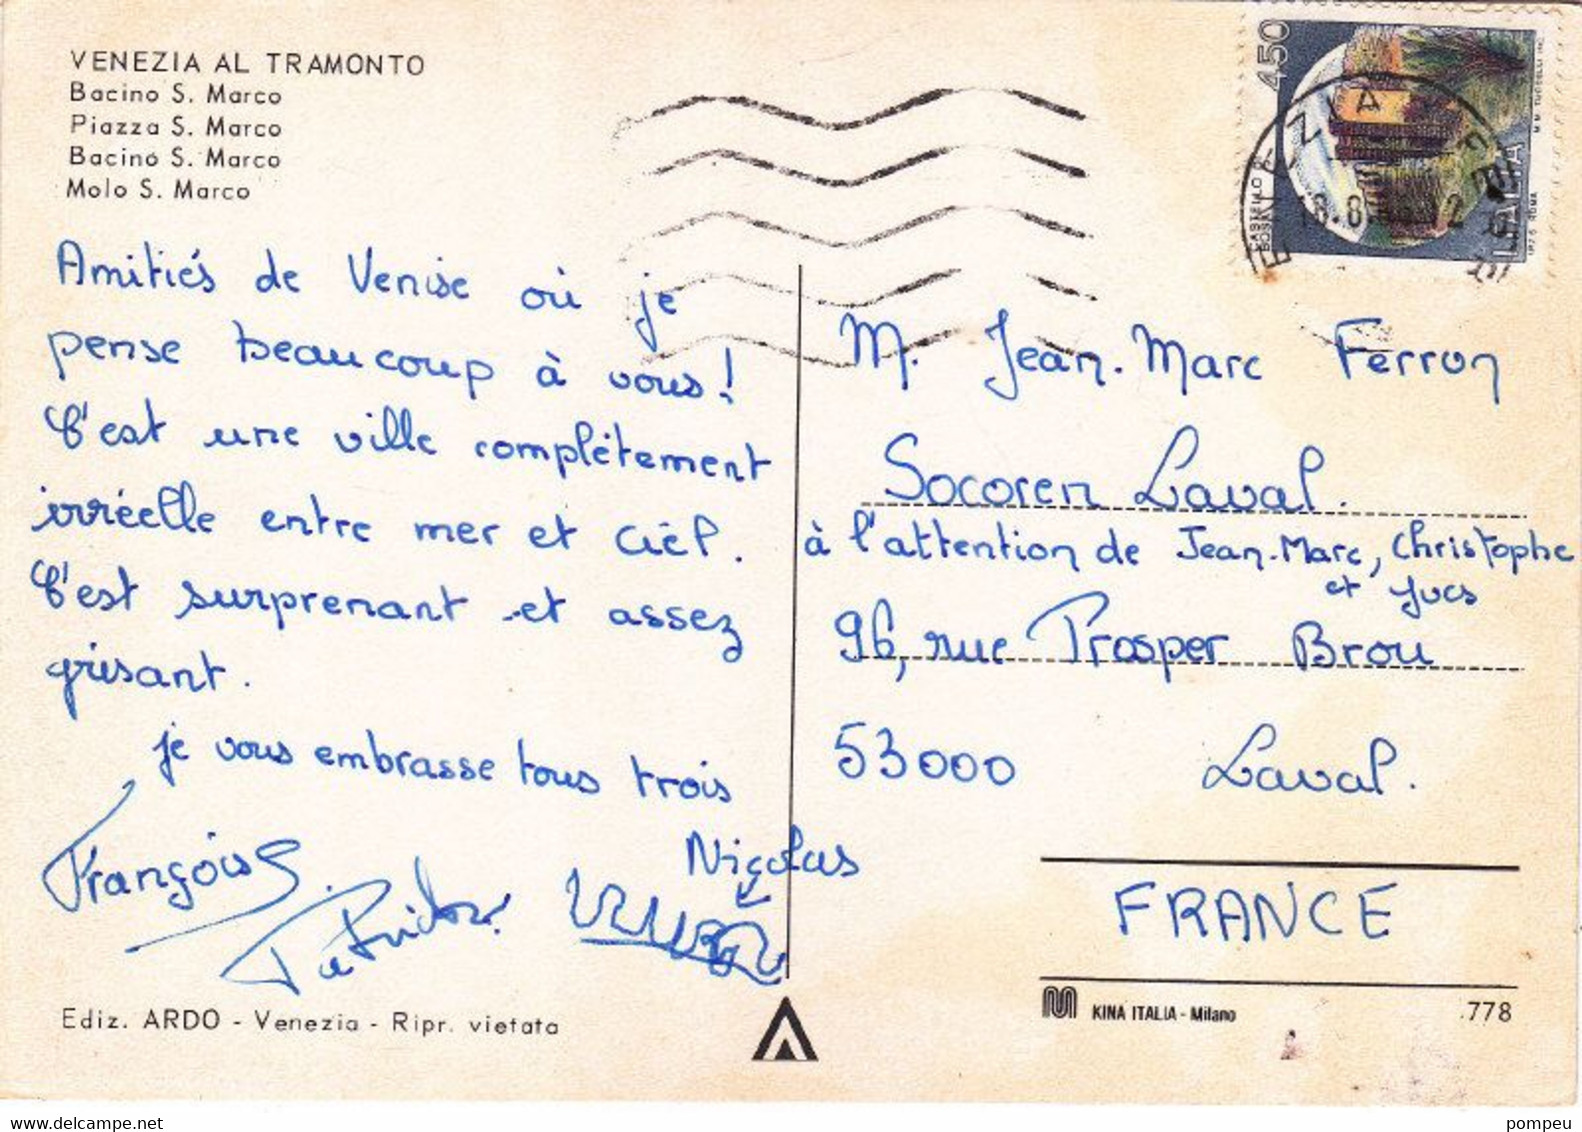 VENEZIA AL TRAMONTO
Bacino S. Marco
Piazza S. Marco
Bacino S. Marco
Molo S. Marco
450
CASTELLO DI
ITALIA
M.M. TUCCELLI INC.
I.P.Z.S. ROMA
VENEZIA
Amitiés de Venise où je
pense beaucoup à vous !
C'est une ville complètement
irréelle entre mer et ciel.
C'est surprenant et assez
grisant.
je vous embrasse tous trois
François
Nicolas
M. Jean-Marc Ferron
Socoren Laval.
à l'attention de Jean-Marc, Christophe
et Yves
96, rue Prosper Brou
53000 Laval.
FRANCE
Ediz. ARDO - Venezia - Ripr. vietata
KINA ITALIA - Milano
778
delcampe.net
pompeu